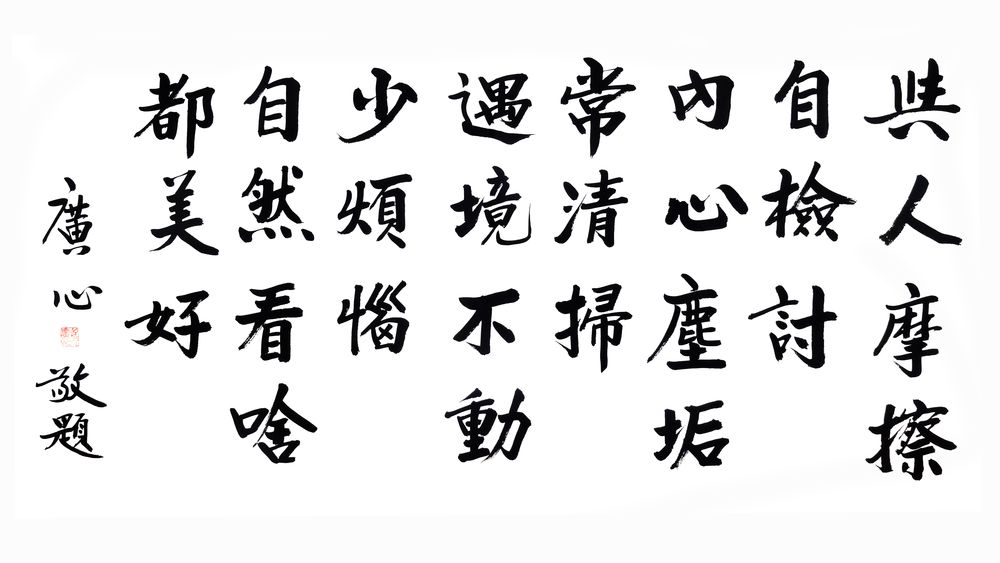 與人摩擦
自檢討
內心塵垢
常清掃
遇境不動
少煩惱
自然看啥
都美好
廣心敬題